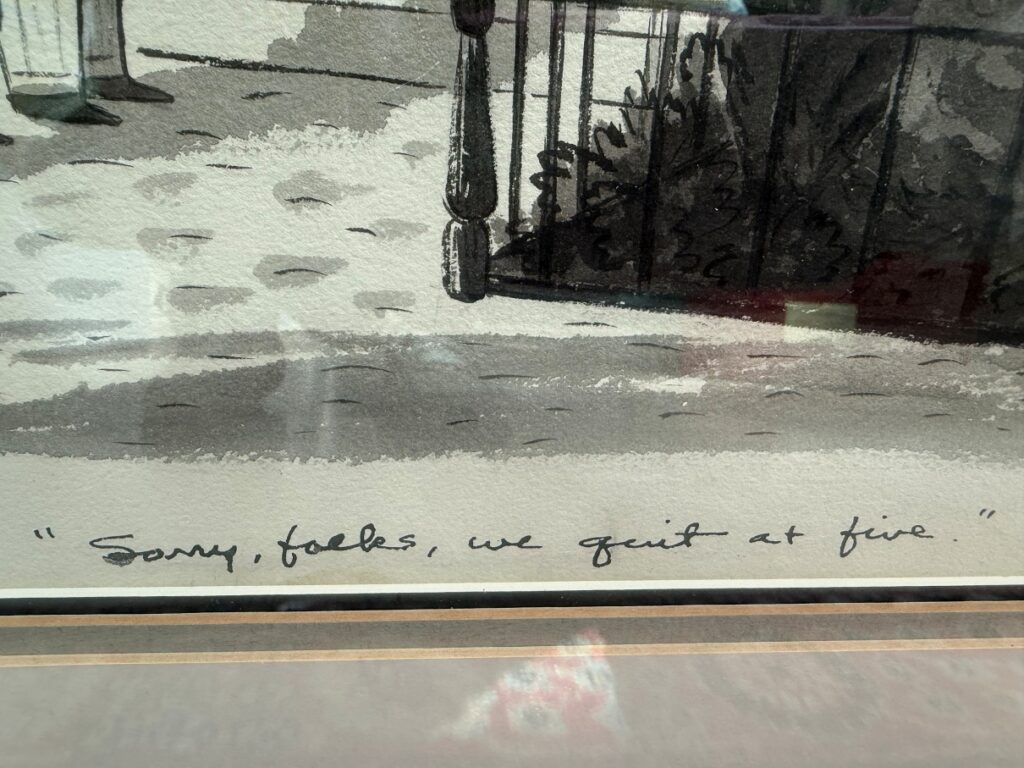 "Sorry, folks, we quit at five."